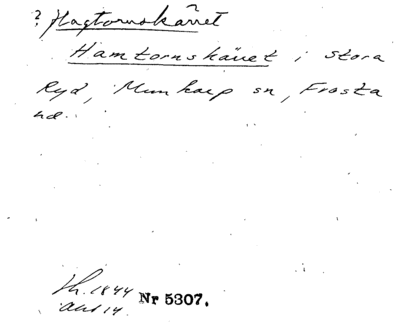 ? Hagtornskärret
Hamtornskäret i stora
Ryd, Munkarp sn, Frosta
hd.
Lh. 1844
Akt 14
Nr 5307.